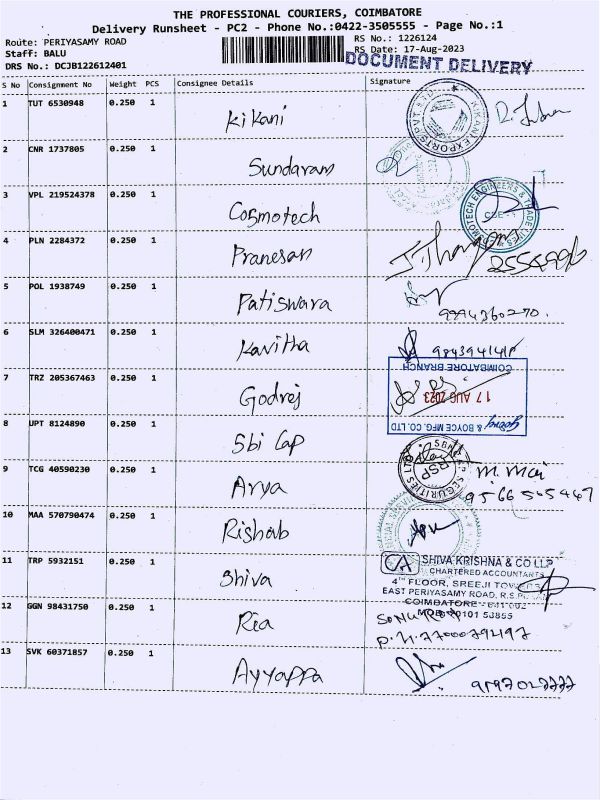 THE PROFESSIONAL COURIERS, COIMBATORE
Delivery Runsheet - PC2 - Phone No.:0422-3505555 - Page No.:1
Route: PERIYASAMY ROAD
RS No.: 1226124
Staff: BALU
RS Date: 17-Aug-2023
DRS No.: DCJB122612401
DOCUMENT DELIVERY
S No Consignment No Weight PCS Consignee Details Signature
1 TUT 6530948 0.250 1 Kikani
2 CNR 1737805 0.250 1 Sundaram
3 VPL 219524378 0.250 1 Cosmotech
4 PLN 2284372 0.250 1 Pranesan
5 POL 1938749 0.250 1 Patiswara
9994360270.
6 SLM 326400471 0.250 1 Kavitha
COIMBATORE BRANCH
7 TRZ 205367463 0.250 1 Godrej
17 AUG 2023
& BOYCE MFG. CO. LTD
8 UPT 8124890 0.250 1 Sbi Cap
9 TCG 40590230 0.250 1 Arya
RSP
10 MAA 570790474 0.250 1 Rishab
11 TRP 5932151 0.250 1 Shiva
CA SHIVA KRISHNA & CO LLP
CHARTERED ACCOUNTANTS
4TH FLOOR, SREEJI TOWERS
EAST PERIYASAMY ROAD, R.S.
COIMBATORE - 641 002
12 GGN 98431750 0.250 1 Ria
13 SVK 60371857 0.250 1 Ayyappa